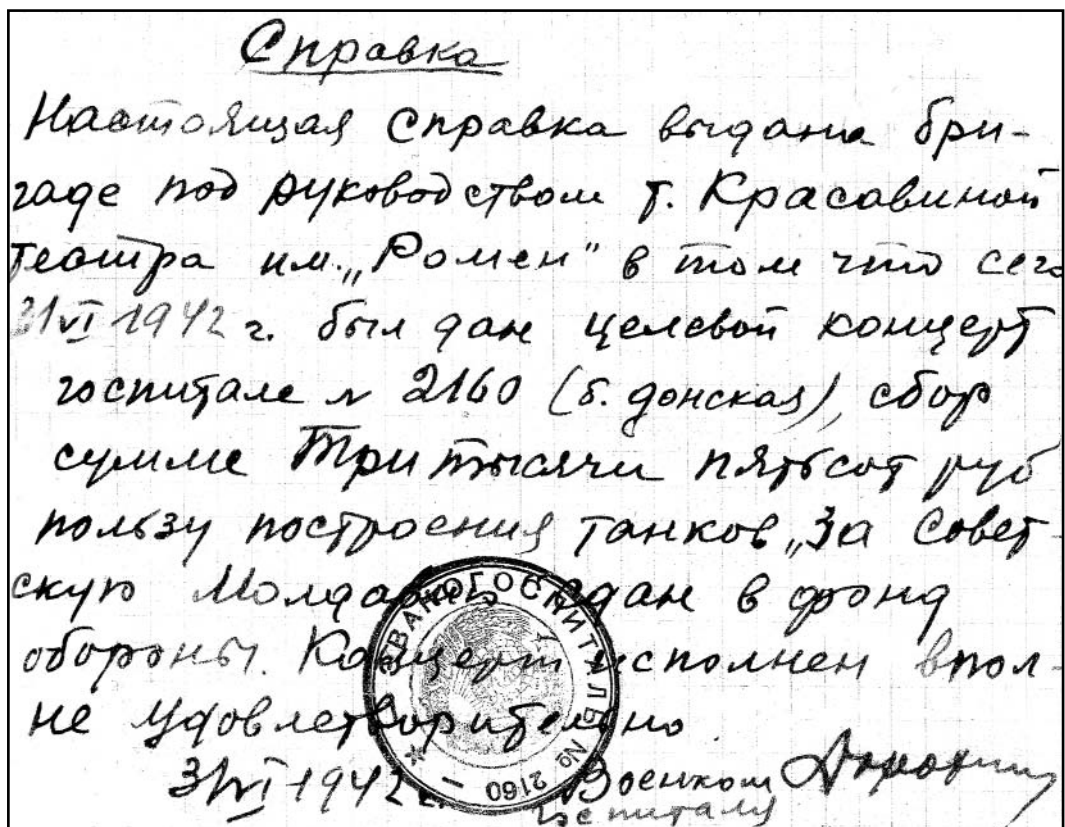 Справка
Настоящая справка выдана бри-
гаде под руководством т. Красавиной
театра им. „Ромен" в том что сего
31 VI 1942 г. был дан целевой концерт
госпитале № 2160 (б. донская), сбор
сумме Три тысячи пятьсот руб
пользу построения танков „За Совет-
скую Молдавию сдан в фонд
обороны. Концерт исполнен впол-
не удовлетворительно
31 VI 1942 г. Военком
госпиталя
ЭВАКОГОСПИТАЛЬ № 2160